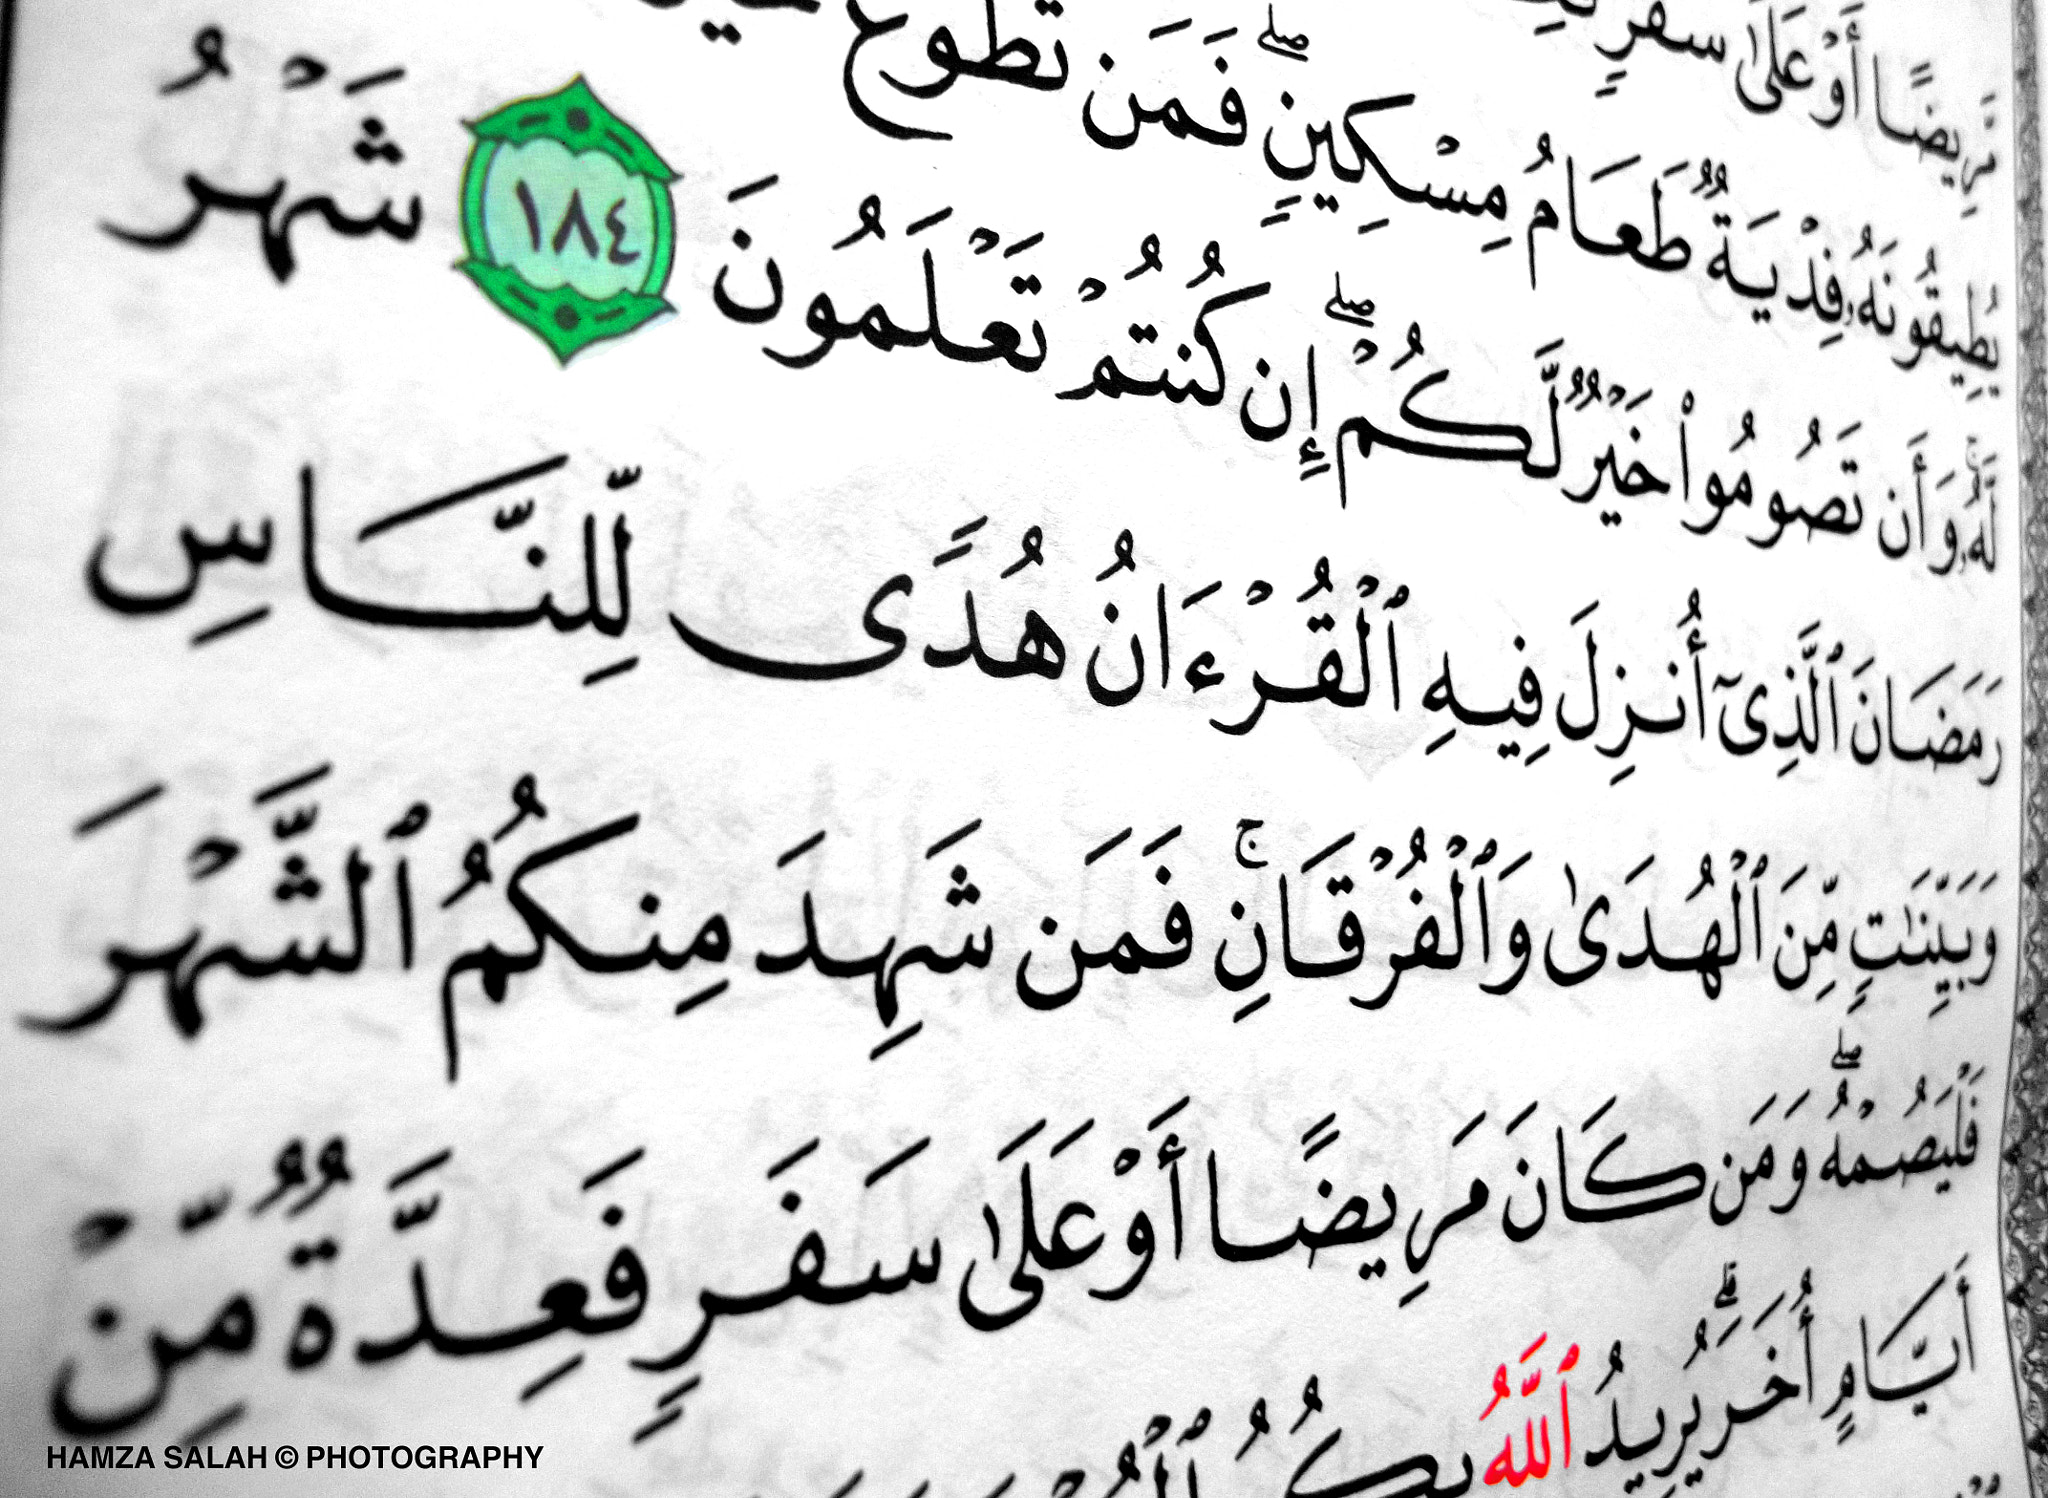 مَّرِيضًا أَوْ عَلَىٰ سَفَرٍ
يُطِيقُونَهُۥ فِدْيَةٌ طَعَامُ مِسْكِينٍۖ فَمَن تَطَوَّعَ
لَّهُۥۚ وَأَن تَصُومُوا۟ خَيْرٌ لَّكُمْۖ إِن كُنتُمْ تَعْلَمُونَ ١٨٤ شَهْرُ
رَمَضَانَ ٱلَّذِىٓ أُنزِلَ فِيهِ ٱلْقُرْءَانُ هُدًى لِّلنَّاسِ
وَبَيِّنَـٰتٍ مِّنَ ٱلْهُدَىٰ وَٱلْفُرْقَانِۚ فَمَن شَهِدَ مِنكُمُ ٱلشَّهْرَ
فَلْيَصُمْهُۖ وَمَن كَانَ مَرِيضًا أَوْ عَلَىٰ سَفَرٍ فَعِدَّةٌ مِّنْ
أَيَّامٍ أُخَرَۗ يُرِيدُ ٱللَّهُ بِكُمُ
HAMZA SALAH © PHOTOGRAPHY